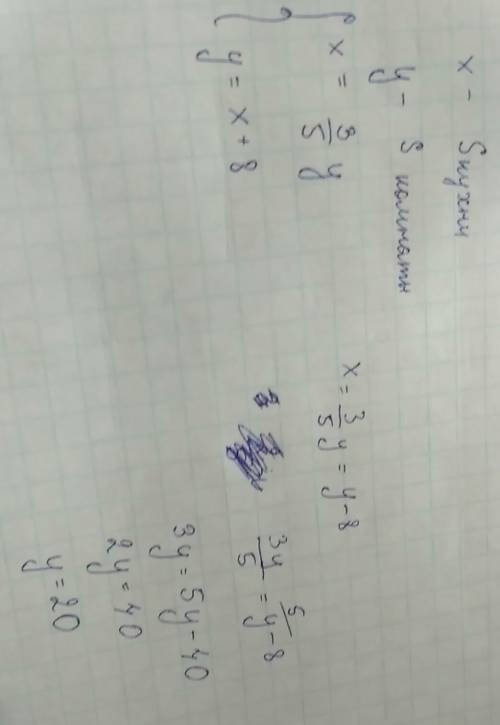 x - S кухни
y - S комнаты
x = 3/5 y
y = x + 8
x = 3/5 y = y - 8
3y/5 = y - 8 5/
3y = 5y - 40
2y = 40
y = 20